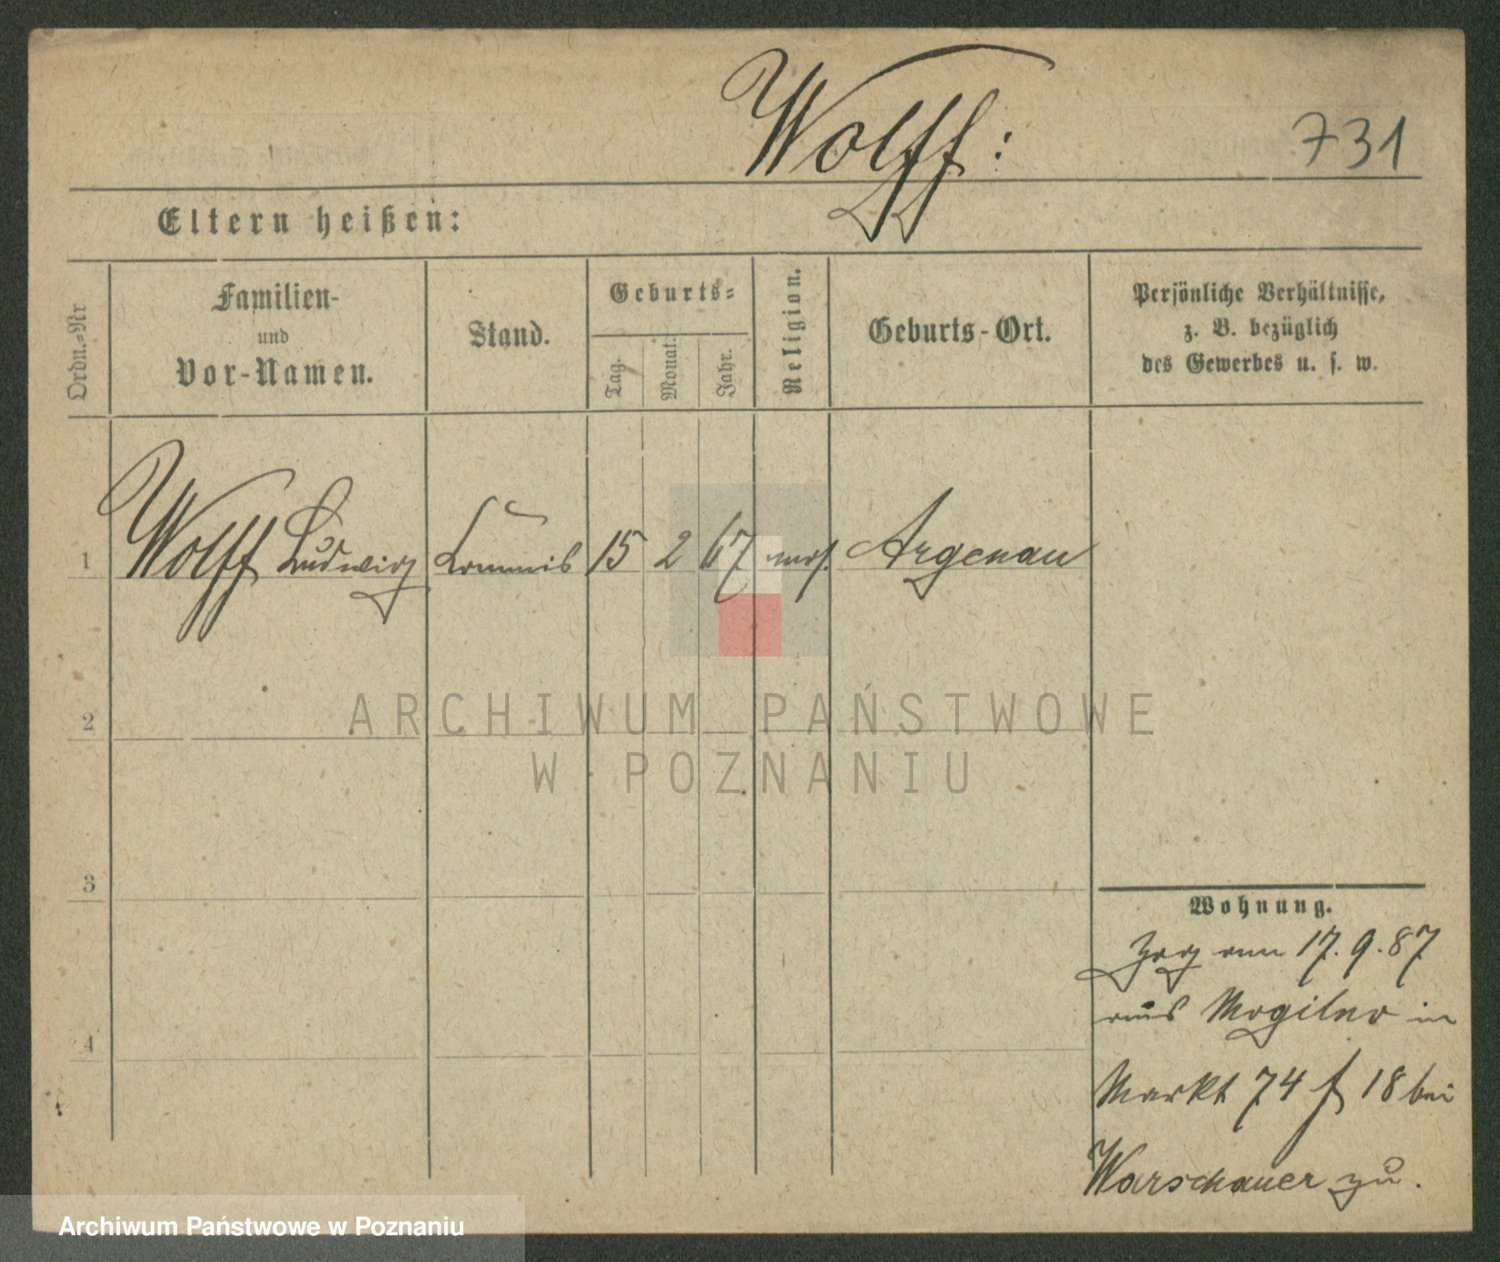 Wolff:
731
Eltern heißen:
Ordn.-Nr
Familien-
und
Vor-Namen.
Stand.
Geburts-
Tag.
Monat.
Jahr.
Religion.
Geburts-Ort.
Persönliche Verhältnisse,
z. B. bezüglich
des Gewerbes u. s. w.
1 Wolff Ludwig Commis 15 2 67 mos. Argenau
2
ARCHIWUM PAŃSTWOWE
W POZNANIU
3
Wohnung.
Zog am 17.9.87
aus Mogilno in
4
Markt 74 f 18 bei
Warschauer zu.
Archiwum Państwowe w Poznaniu